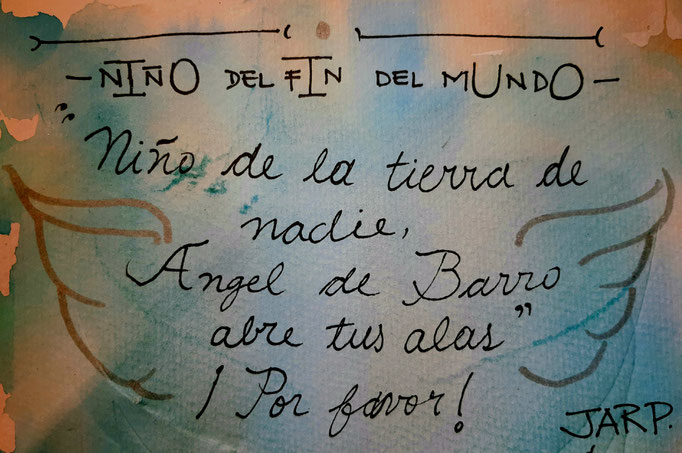 - NIÑO DEL FIN DEL MUNDO -
"Niño de la tierra de
nadie,
Angel de Barro
abre tus alas"
¡Por favor!
JARP.